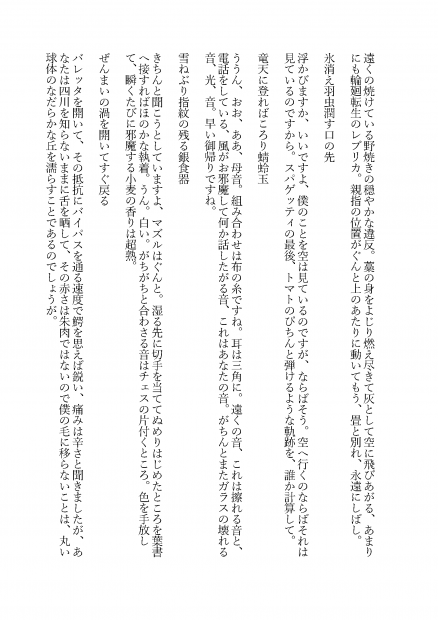 遠くの焼けている野焼きの穏やかな違反。藁の身をよじり燃え尽きて灰として空に飛びあがる、あまり
にも輪廻転生のレプリカ。親指の位置がぐんと上のあたりに動いてもう、畳と別れ、永遠にしばし。
氷消え羽虫潤す口の先
浮かびますか、いいですよ、僕のことを空は見ているのですが、ならばそう。空へ行くのならばそれは
見ているのですから。スパゲッティの最後、トマトのぴちんと弾けるような軌跡を、誰か計算して。
竜天に登ればころり蜻蛉玉
ううん、おお、ああ、母音。組み合わせは布の糸ですね。耳は三角に。遠くの音、これは擦れる音と、
電話をしている、風がお邪魔して何か話したがる音、これはあなたの音。がちんとまたガラスの壊れる
音、光、音。早い御帰りですね。
雪ねぶり指紋の残る銀食器
きちんと聞こうとしていますよ、マズルはぐんと。湿る先に切手を当てぬめりはじめたところを葉書
へ接すればほのかな執着。うん。白い。がちがちと合わさる音はチェスの片付くところ。色を手放し
て、瞬くたびに邪魔する小麦の香りは超熟。
ぜんまいの渦を開いてすぐ戻る
バレッタを開いて、その抵抗にバイパスを通る速度で鰐を思えば鋭い、痛みは辛さと聞きましたが、あ
なたは四川を知らないままに舌を晒して、その赤さは朱肉ではないので僕の毛に移らないことは、丸い
球体のなだらかな丘を濡らすことであるのでしょうが。